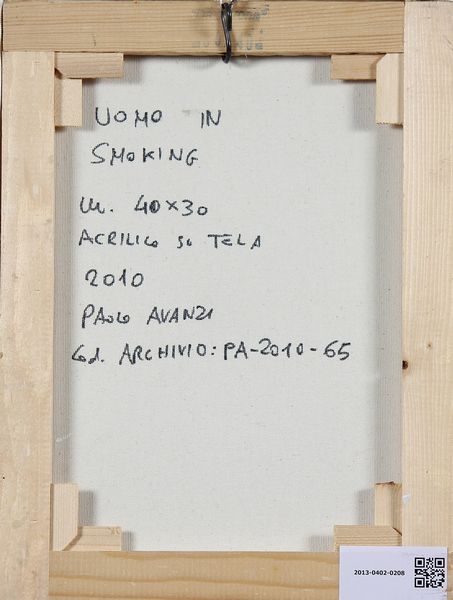 UOMO IN
SMOKING
cm. 40x30
ACRILICO SU TELA
2010
PAOLO AVANZI
Cod. ARCHIVIO: PA-2010-65
2013-0402-0208